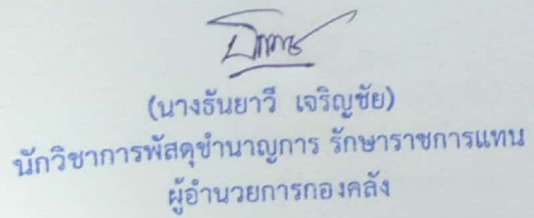 (นางธันยาวี เจริญชัย)
นักวิชาการพัสดุชำนาญการ รักษาราชการแทน
ผู้อำนวยการกองคลัง